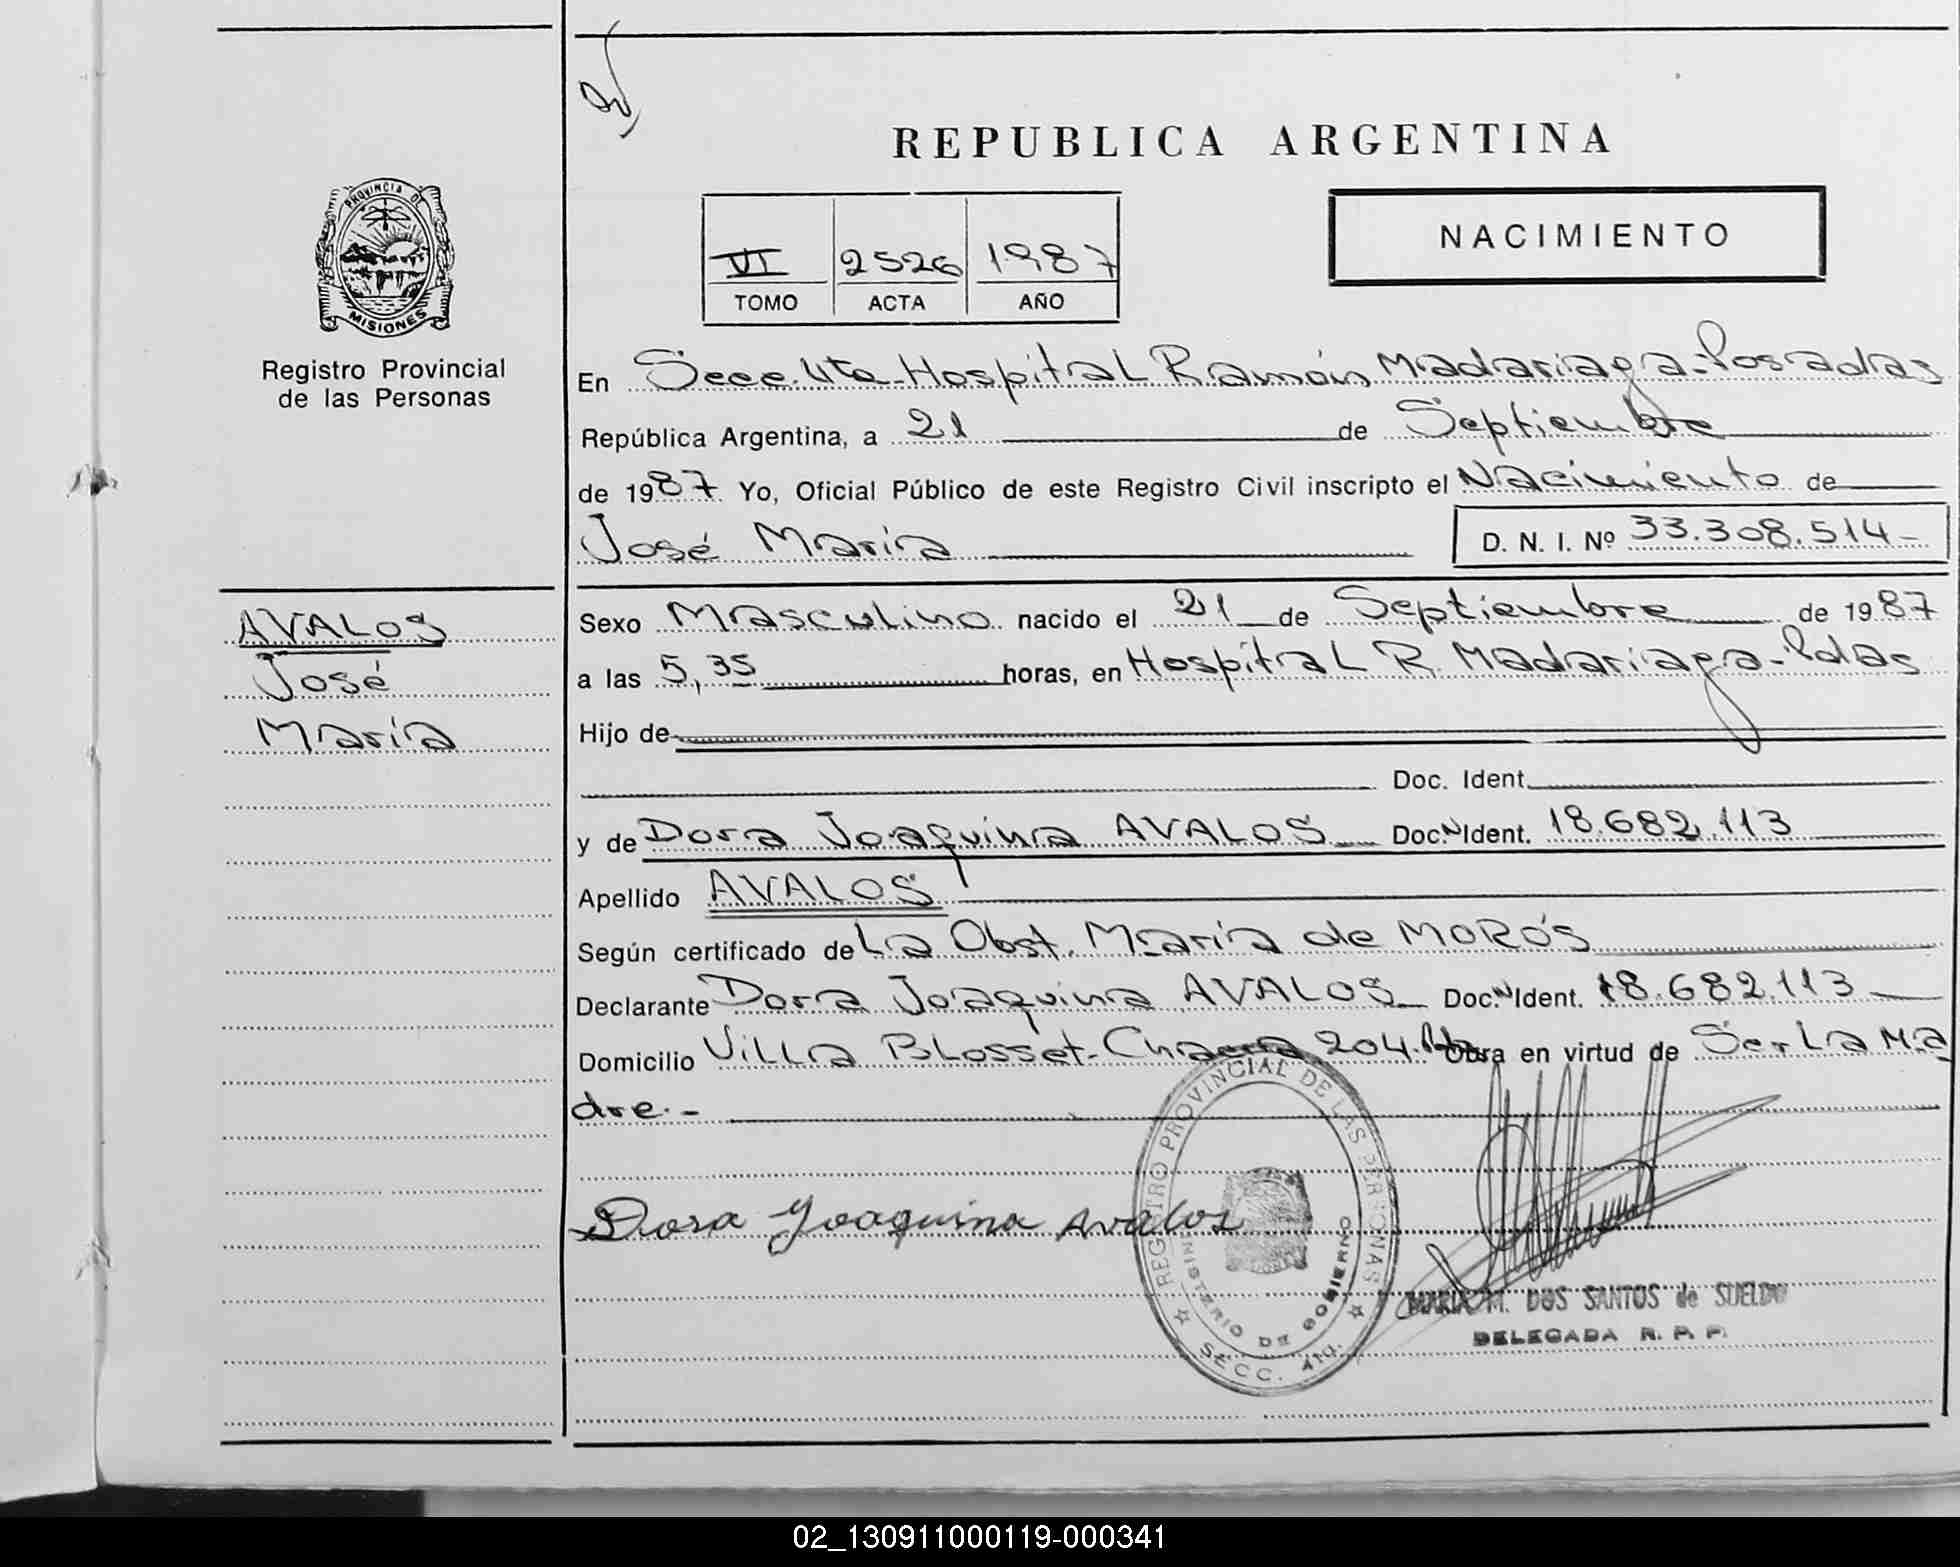 REPUBLICA ARGENTINA
PROVINCIA DE
MISIONES
Registro Provincial
de las Personas
VI 2526 1987
TOMO ACTA AÑO
NACIMIENTO
En Secc. 4ta. Hospital Ramón Madariaga - Posadas
República Argentina, a 21 de Septiembre
de 1987 Yo, Oficial Público de este Registro Civil inscripto el Nacimiento de
José María
D. N. I. Nº 33.308.514-
AVALOS
José
María
Sexo Masculino nacido el 21 de Septiembre de 1987
a las 5,35 horas, en Hospital R. Madariaga - Pdas
Hijo de
Doc. Ident.
y de Dora Joaquina AVALOS Doc. N Ident. 18.682.113
Apellido AVALOS
Según certificado de La Obst. María de MORÓS
Declarante Dora Joaquina AVALOS Doc. N Ident. 18.682.113
Domicilio Villa Blosset - Chacra 204. Obra en virtud de Ser La Ma
dre.-
Dora Joaquina Avalos
REGISTRO PROVINCIAL DE LAS PERSONAS
MINISTERIO DE GOBIERNO
SECC. 4ta.
MARIA M. DOS SANTOS de SUELDO
DELEGADA R. P. P.
02_130911000119-000341